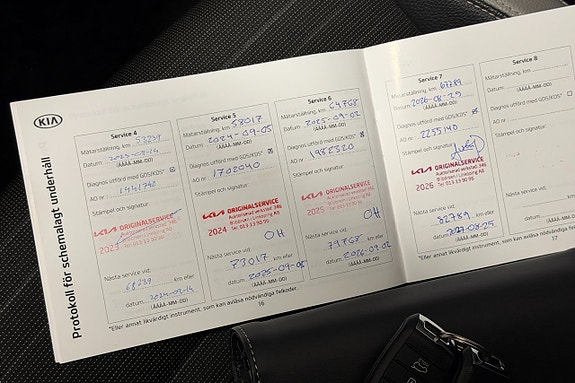 KIA
Protokoll för schemalagt underhåll
Service 4
Mätarställning, km 53239
Datum 2023-09-14
(ÅÅÅÅ-MM-DD)
Diagnos utförd med GDS/KDS*
AO nr
Stämpel och signatur:
KIA ORIGINALSERVICE
Auktoriserad verkstad 346
Bilbrsan i Linköping AB
2023 Tel: 013 13 90 96
Nästa service vid:
68239 km eller
datum 2024-09-14
(ÅÅÅÅ-MM-DD)
Service 5
Mätarställning, km 58017
Datum 2024-09-05
(ÅÅÅÅ-MM-DD)
Diagnos utförd med GDS/KDS*
AO nr 1702040
Stämpel och signatur:
KIA ORIGINALSERVICE
Auktoriserad verkstad 346
Bilbrsan i Linköping AB
2024 Tel: 013 13 90 96
OH
Nästa service vid:
73017 km eller
datum 2025-09-05
(ÅÅÅÅ-MM-DD)
Service 6
Mätarställning, km 64768
Datum 2025-09-02
(ÅÅÅÅ-MM-DD)
Diagnos utförd med GDS/KDS*
AO nr 1982320
Stämpel och signatur:
KIA ORIGINALSERVICE
Auktoriserad verkstad 346
Bilbrsan i Linköping AB
2025 Tel: 013 13 90 96
OH
Nästa service vid:
79768 km eller
datum 2026-09-02
(ÅÅÅÅ-MM-DD)
*Eller annat likvärdigt instrument, som kan avläsa nödvändiga felkoder.
16
Service 7
Mätarställning, km 67789
Datum 2026-08-25
(ÅÅÅÅ-MM-DD)
Diagnos utförd med GDS/KDS*
AO nr 2255140
Stämpel och signatur:
KIA ORIGINALSERVICE
Auktoriserad verkstad 346
Bilbrsan i Linköping AB
2026 Tel: 013 13 90 96
Nästa service vid:
82789 km eller
datum 2027-08-25
(ÅÅÅÅ-MM-DD)
Service 8
Mätarställning, km
Datum
(ÅÅÅÅ-MM-DD)
Diagnos utförd med GDS/KDS*
AO nr
Stämpel och signatur:
Nästa service vid:
km eller
datum
(ÅÅÅÅ-MM-DD)
*Eller annat likvärdigt instrument, som kan avläsa nödvändiga felkoder.
17